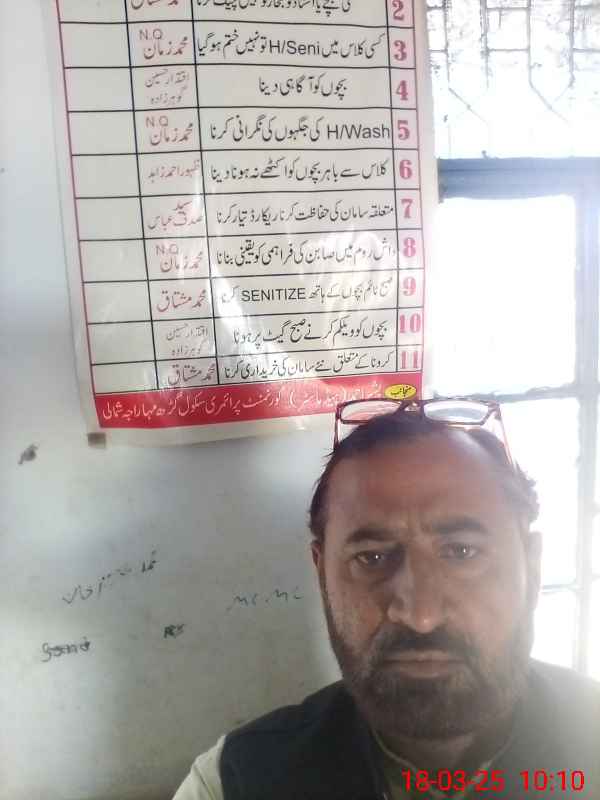 2 کسی بچے یا استاد کو بخار تو نہیں چیک کرنا
3 کسی کلاس میں H/Seni تو نہیں ختم ہو گیا محمد زمان N.Q
4 بچوں کو آگاہی دینا افتخار حسین گوہرزادہ
5 H/Wash کی جگہوں کی نگرانی کرنا محمد زمان N.Q
6 کلاس سے باہر بچوں کو اکٹھے نہ ہونا دینا ظہور احمد زاہد
7 متعلقہ سامان کی حفاظت کرنا ریکارڈ تیار کرنا سید صدف عباس
8 واش روم میں صابن کی فراہمی کو یقینی بنانا محمد زمان N.Q
9 صبح ٹائم بچوں کے ہاتھ SENITIZE کرنا محمد مشتاق
10 بچوں کو ویلکم کرنے صبح گیٹ پر ہونا افتخار حسین گوہرزادہ
11 کرونا کے متعلق نئے سامان کی خریداری کرنا محمد مشتاق
منجانب احمد (ہیڈ ماسٹر) گورنمنٹ پرائمری سکول گڑھ مہاراجہ شمالی
Mc. Mc
18-03-25 10:10